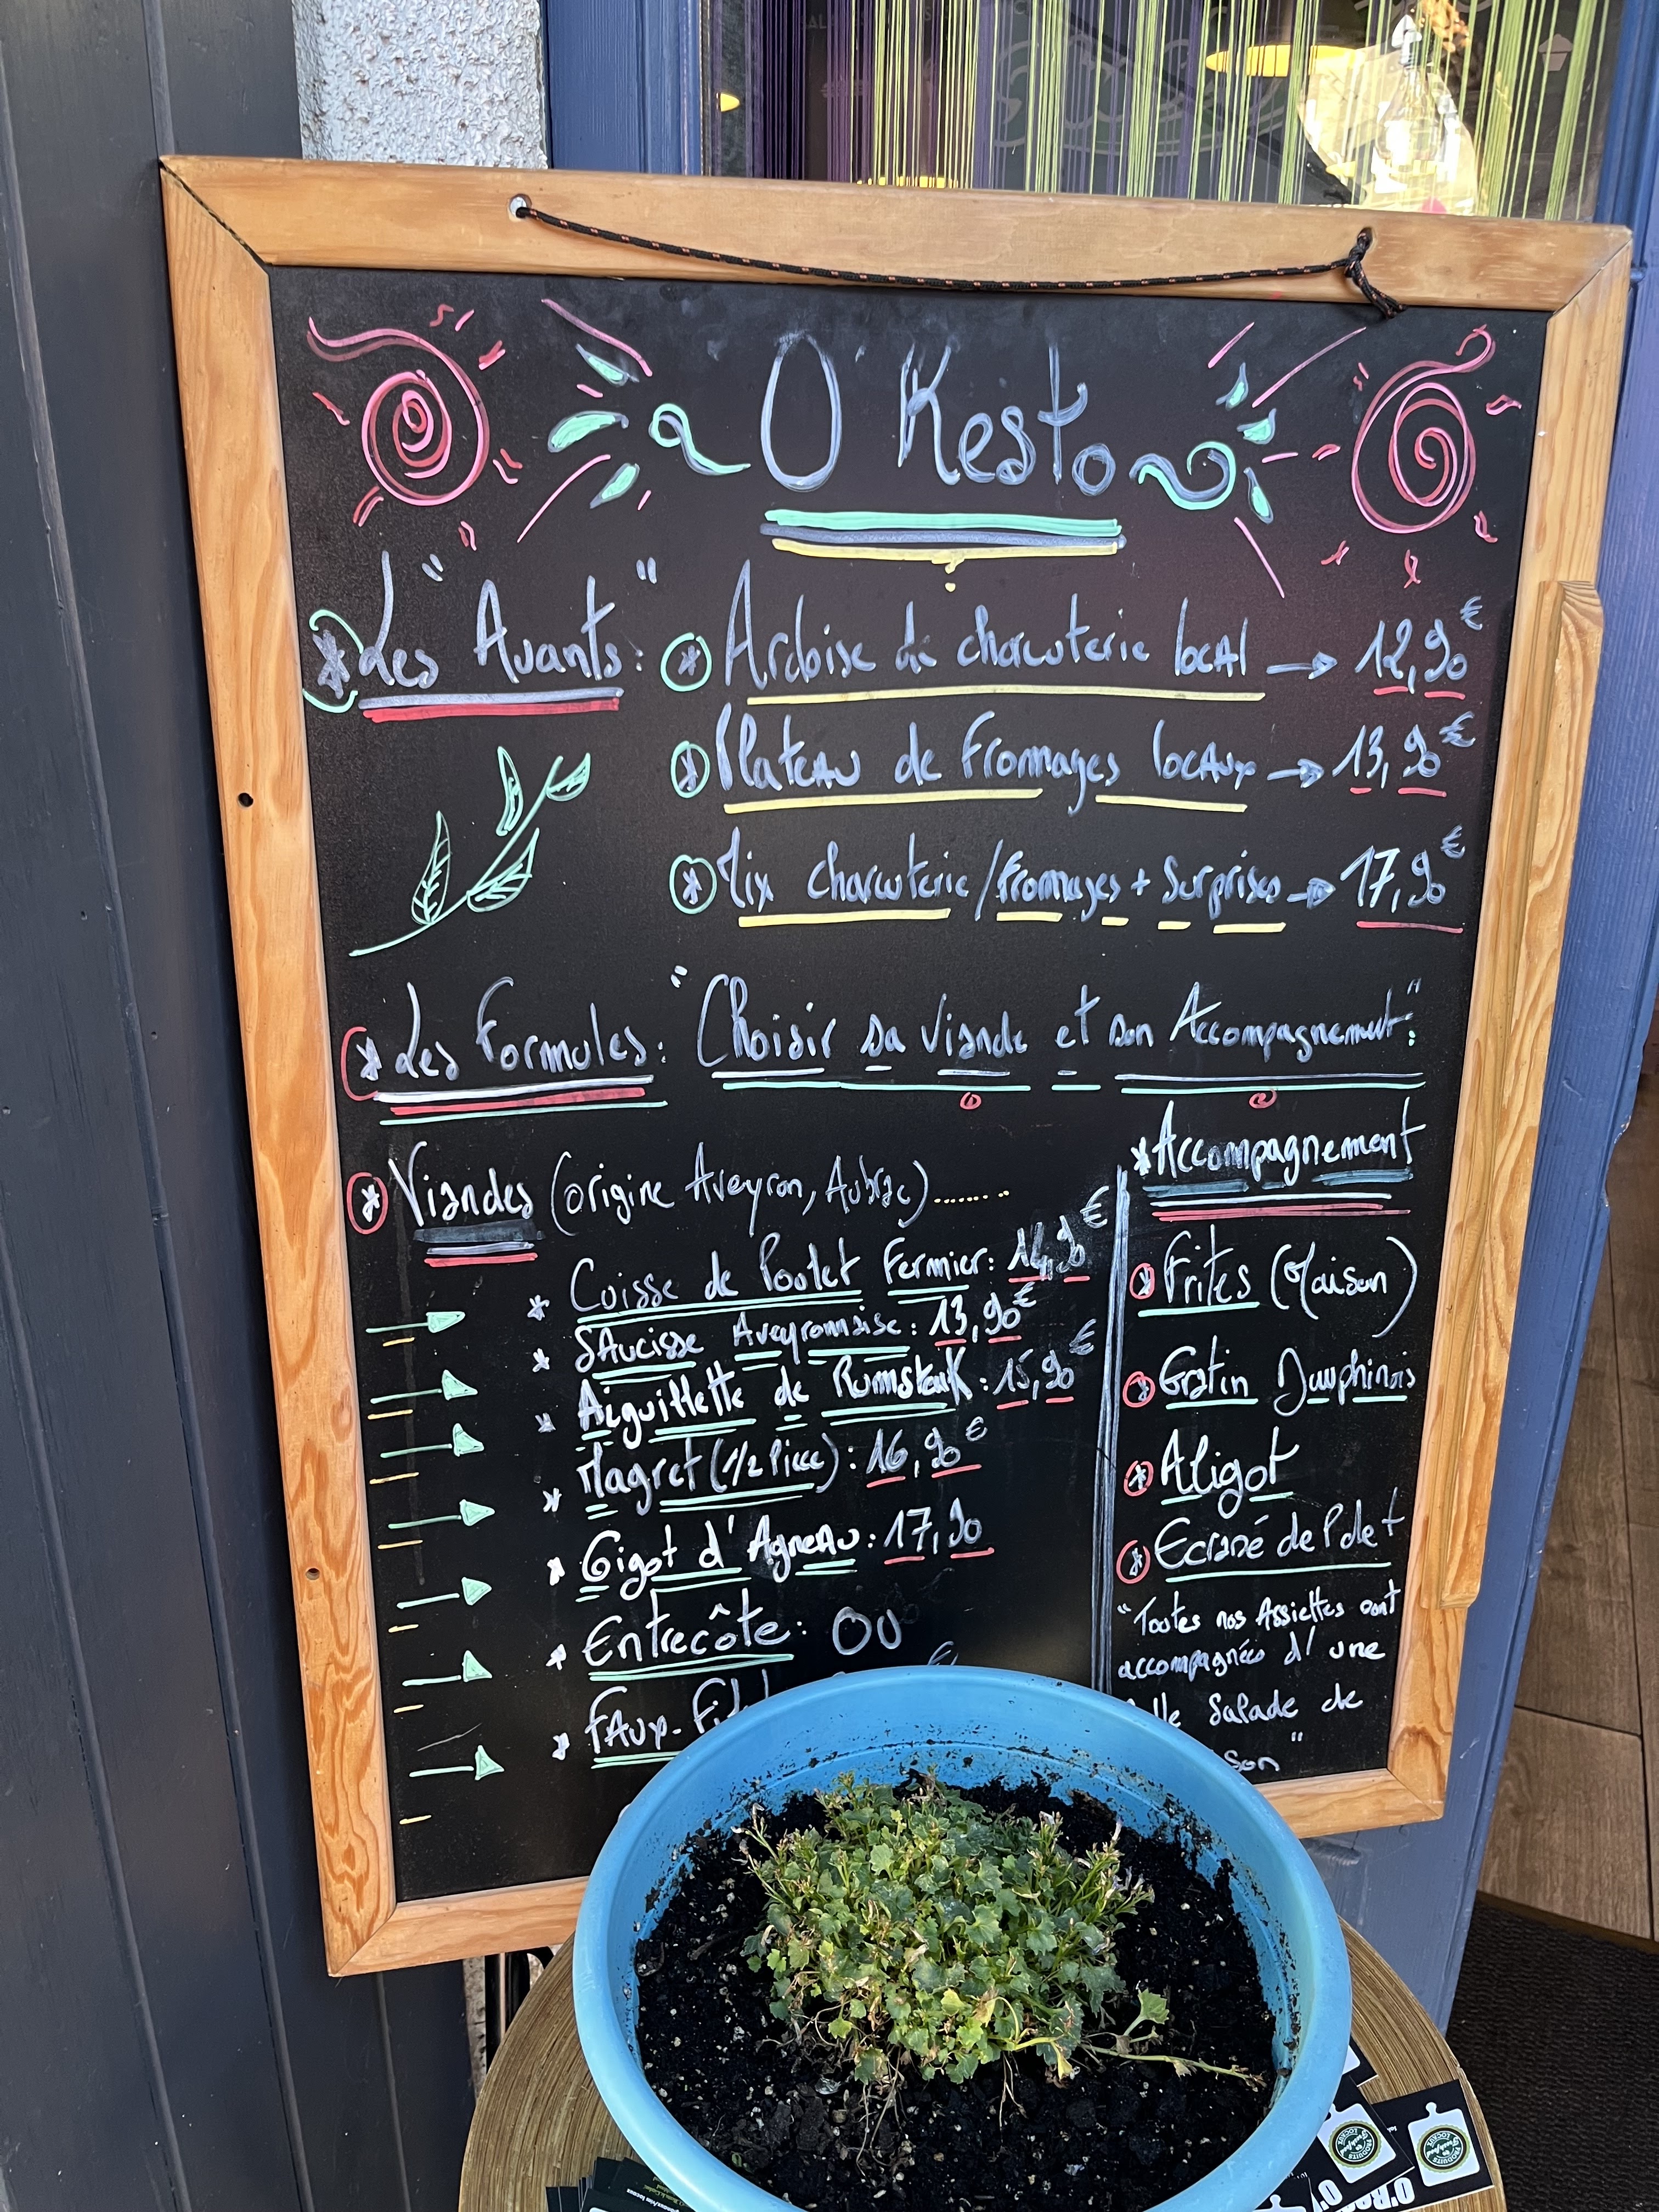 O'Resto
* Les "Avants":
* Ardoise de charcuterie locAl → 12,90€
* PlateAu de Fromages locAux → 13,90€
* Mix charcuterie/fromages + Surprises → 17,90€
* Les Formules: "Choisir sa Viande et son Accompagnement":
* Viandes (origine Aveyron, Aubrac)........
* Cuisse de Poulet Fermier: 14,90€
* SAucisse Aveyronnaise: 13,90€
* Aiguillette de Rumsteak: 15,90€
* Magret (1/2 Pièce): 16,90€
* Gigot d'AgneAu: 17,90
* Entrecôte: OU
* FAux-
* Accompagnement
* Frites (Maison)
* Gratin Dauphinois
* Aligot
* Ecrasé de Pdet
"Toutes nos Assiettes sont
accompagnées d'une
Salade de
"
PRODUITS
LOCAUX